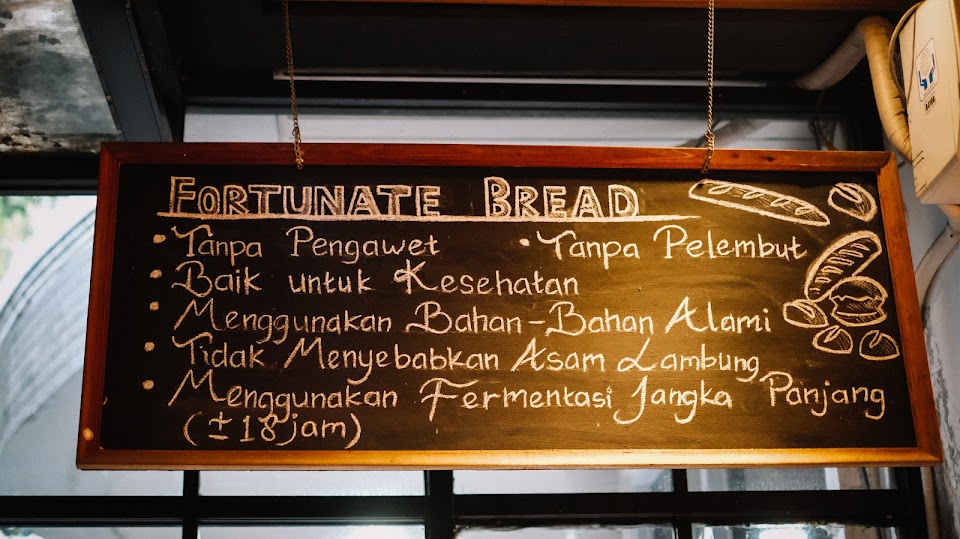 FORTUNATE BREAD
• Tanpa Pengawet • Tanpa Pelembut
• Baik untuk Kesehatan
• Menggunakan Bahan-Bahan Alami
• Tidak Menyebabkan Asam Lambung
• Menggunakan Fermentasi Jangka Panjang
(± 18 jam)